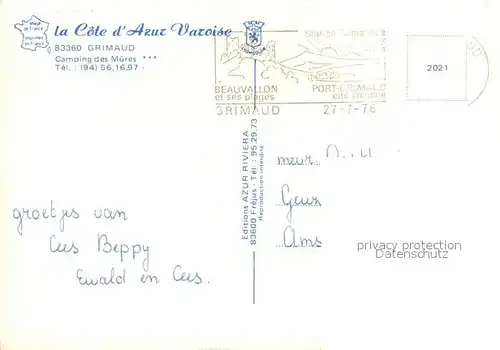 image de France
la Côte d'Azur Varoise
83360 GRIMAUD
Camping des Mûres ***
Tél. : (94) 56.16.97 -
BEAUVALLON
et ses plages
PORT-GRIMAUD
cité lacustre
GRIMAUD
27-7-76
2021
Editions AZUR RIVIERA
83600 Fréjus - Tél : 95.29.73
Reproduction interdite
groetjes van
Cees Beppy
Ewald en Cees.
meur
Ams
privacy protection
Datenschutz